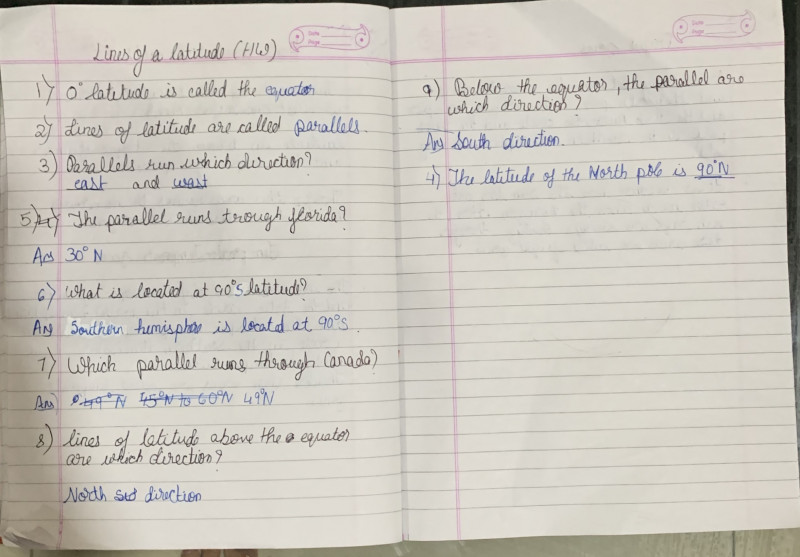 Lines of a latitude (HW)
1) 0° latetude is called the equator
2) Lines of latitude are called parallels.
3) Parallels run which direction?
east and west
5) The parallel runs trough florida?
Ans 30° N
6) What is located at 90°S latitude?
Ans Southern hemisphere is located at 90°S
7) Which parallel runs through Canada?
Ans) 49°N 45°N to 60°N 49°N
8) lines of latetude above the equator
are which direction?
North direction
Date
Page
9) Below the equator, the parallel are
which direction?
Ans South direction.
4) The latitude of the North pole is 90°N